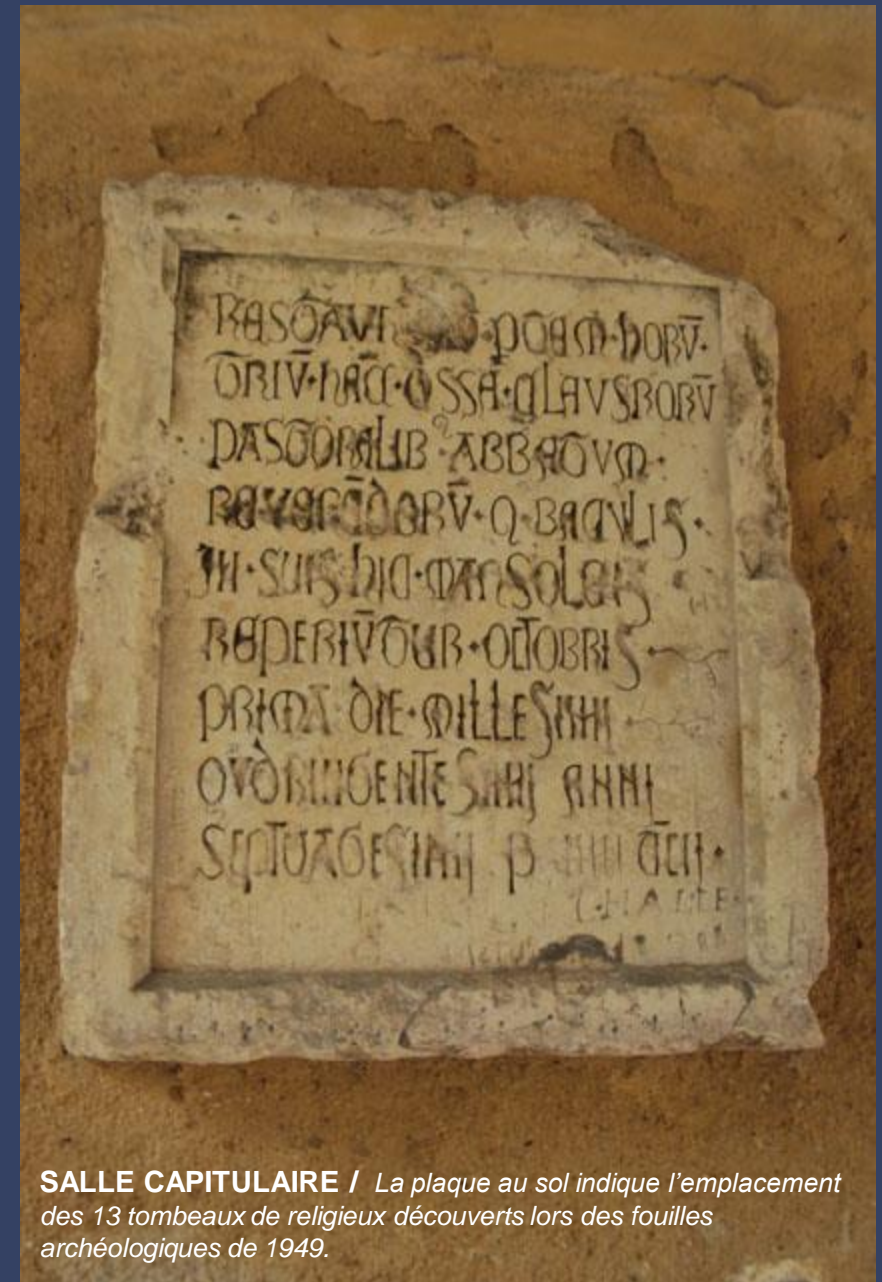 RESTAVR POTEM · HORV̄ ·
ŌRIV̄ · HAC̄ · OSSA · CLAVSTRORV̄
PASTORALIB ABBATVM ·
REVERĒDORV̄ · Q · BACVLIS ·
IN · SUIS HIC · MAVSOLEIS
REPERIV̄TUR · OCTOBRIS
PRIMA DIE · MILLESIMI
QVDRINGENTESIMI ANNI
SEPTUAGESIMI
SALLE CAPITULAIRE / La plaque au sol indique l’emplacement
des 13 tombeaux de religieux découverts lors des fouilles
archéologiques de 1949.